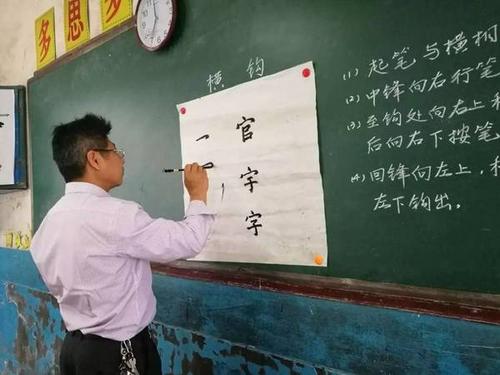 多思
多
横钩
一 官
字
字
(1) 起笔与横相
(2) 中锋向右行笔
(3) 至钩处向右上
后向右下按笔
(4) 回锋向左上，
左下钩出。